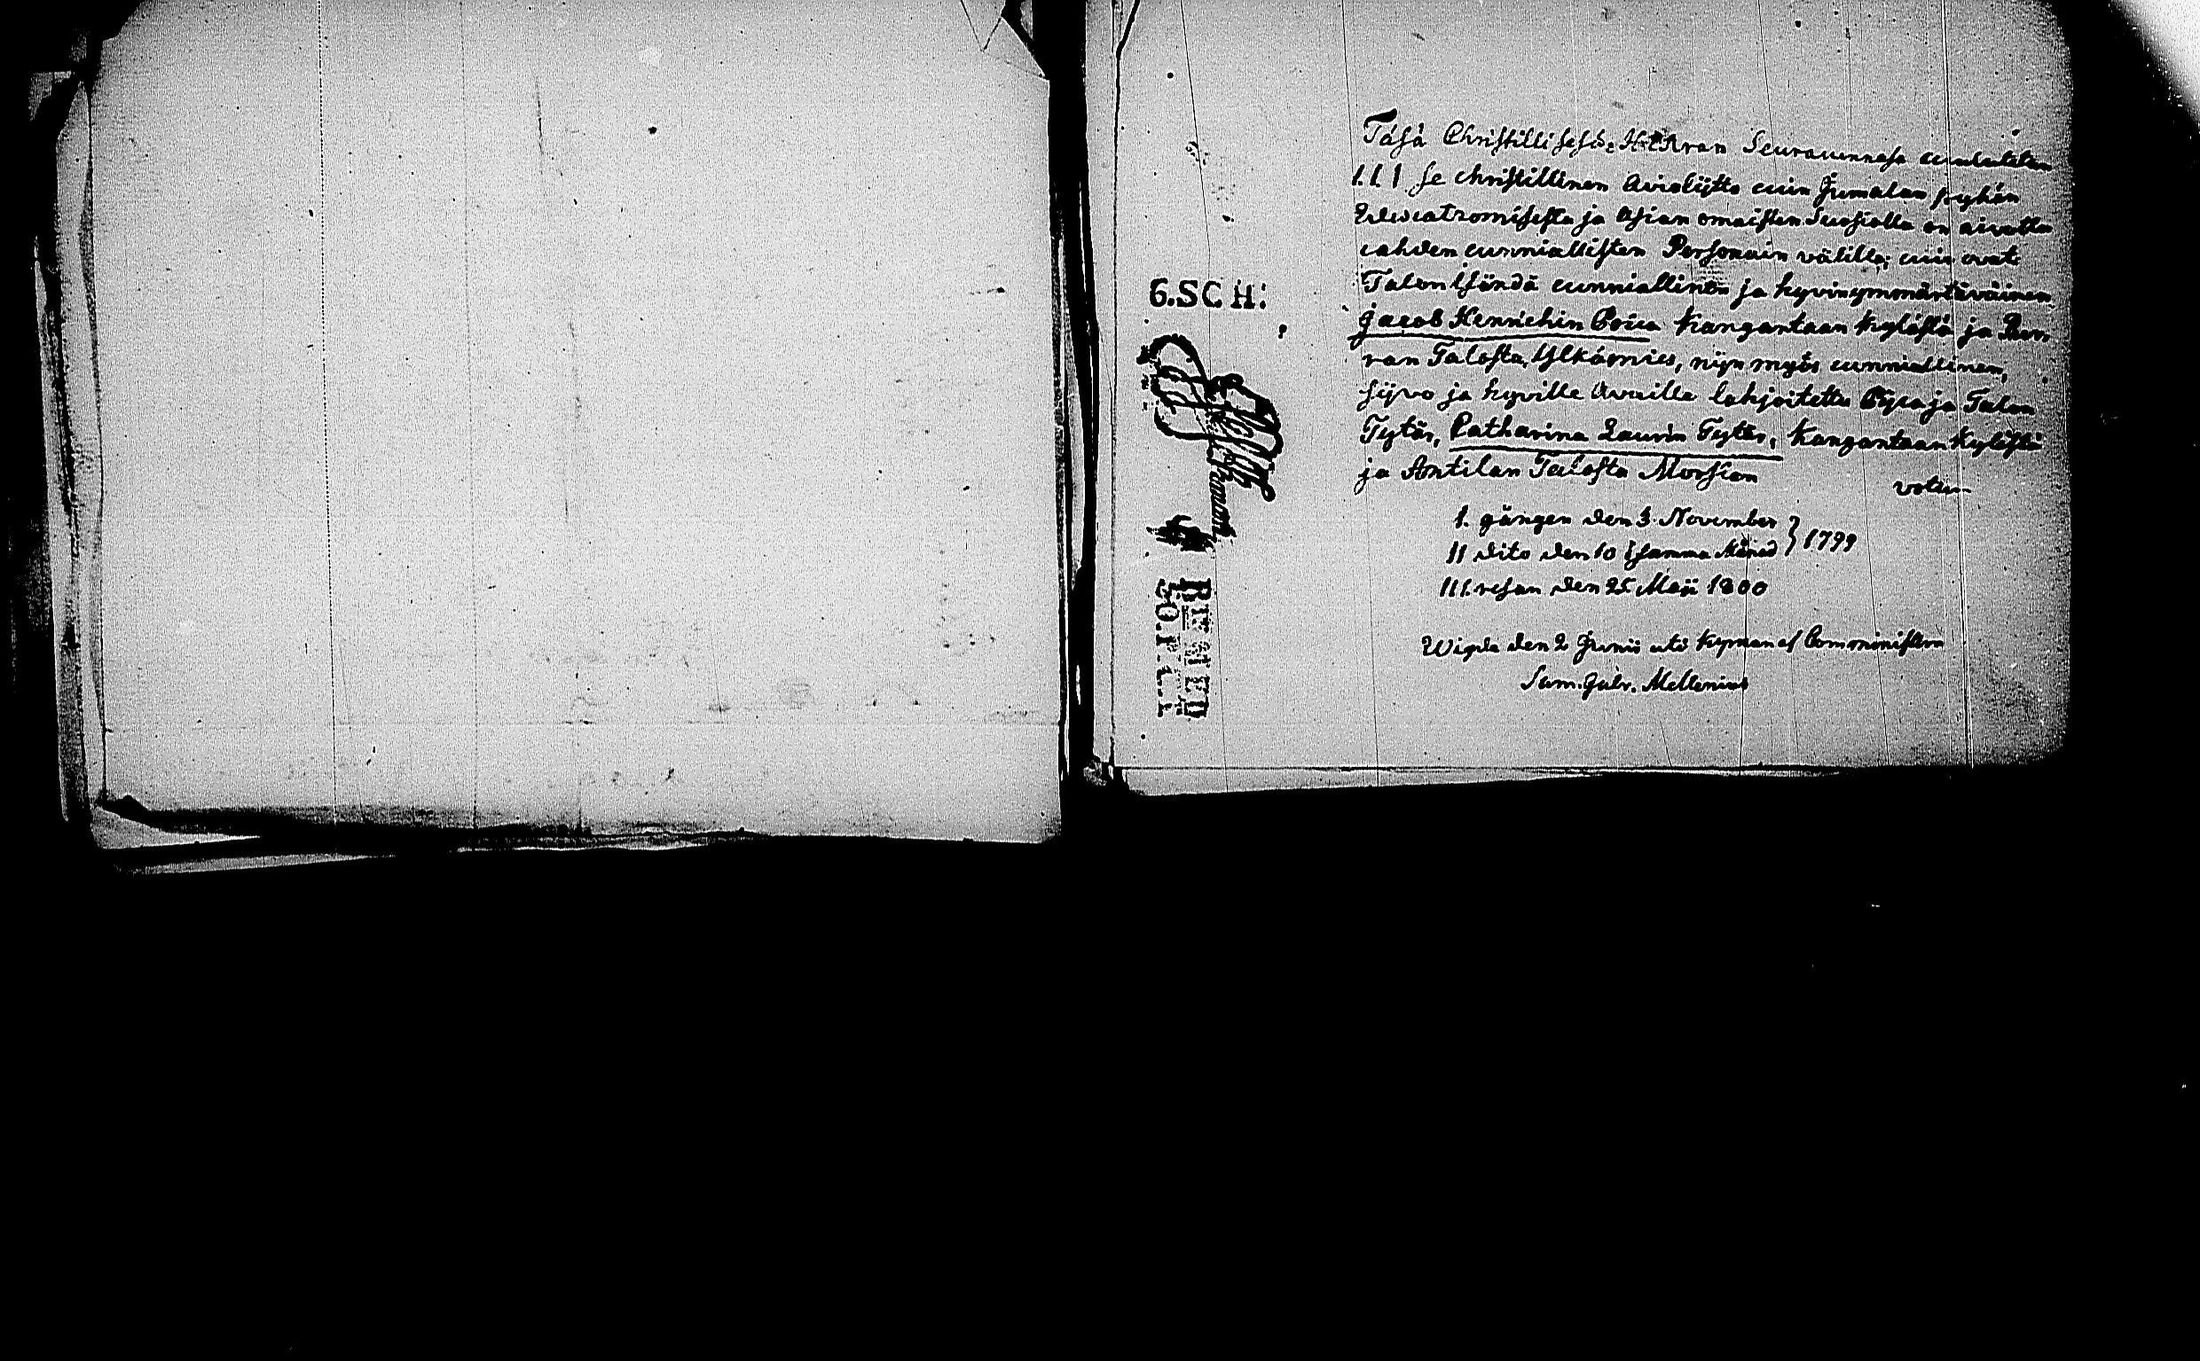 6.SCH:
Täsä Christillisesä HERran Seuracunnasa cuulutetan
I.I.I se christillinen Avioliitto cuin Jumalan pyhän
Edescatzomisesta ja Asian omaisten Suosiolla on aivottu
cahden cunniallisten Personain välille; cuin ovat
Talon Isändä cunniallinen ja hyvinymmärtäväinen
Jacob Henrichin Poica Kangantaan Kylästä ja
ran Talosta, Ylkämies, nijn myös cunniallinen,
sijvo ja hyville Avuille lahjoitettu Pijca ja Talon
Tytär, Catharina Laurin Tytär, Kangantaan Kylästä
ja Antilan Talosta Morsian
I. gången den 3. November } 1799
II dito den 10 samma Månad
III. resan den 25 Maji 1800
Wigde den 2 Junii utò Kyrkan af Comministern
Sam. Gabr. Mellenius